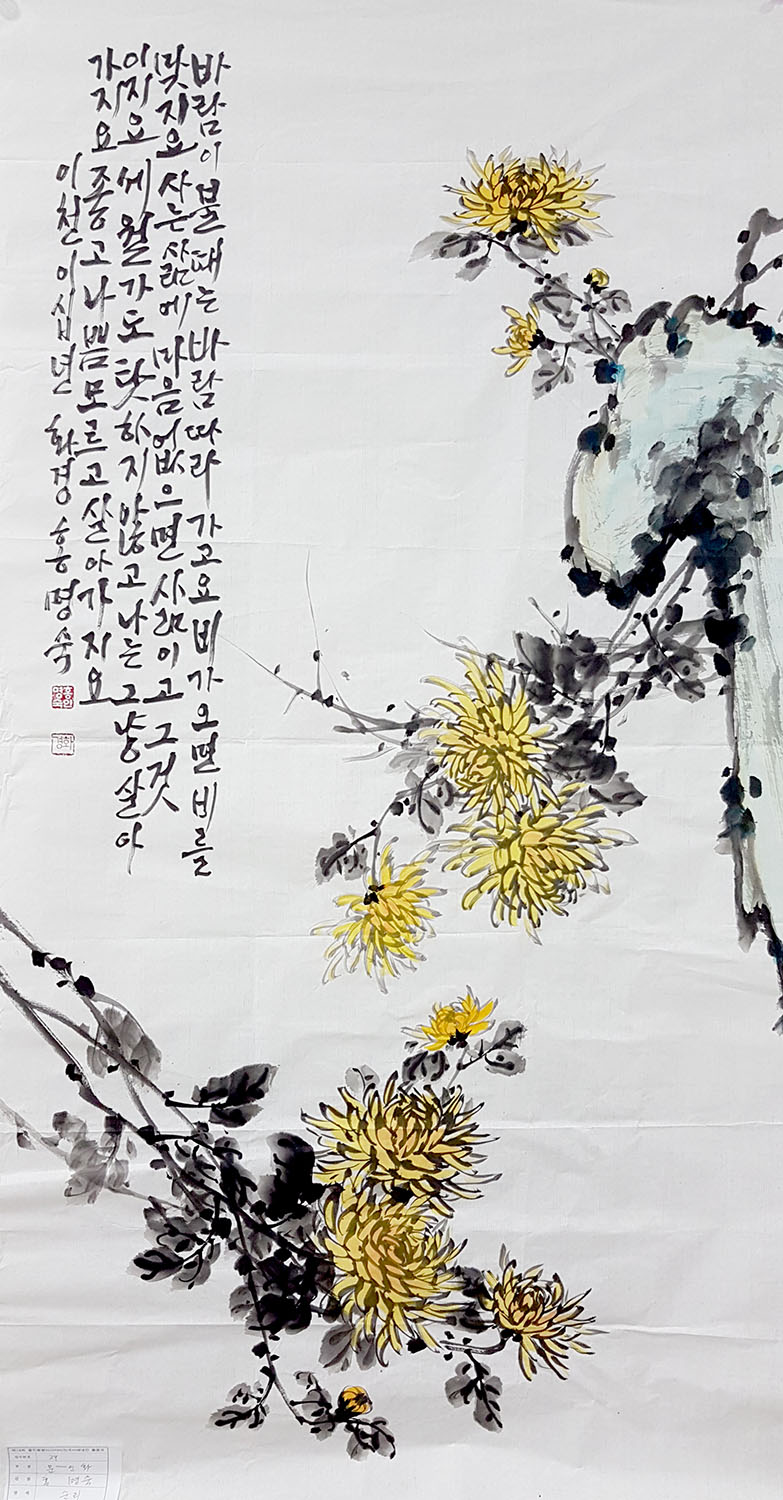 바람이 불때는 바람따라 가고요 비가오면 비를
맞지요 사는 삶에 마음 없으면 사람이고 그것
이지요 세월가도 탓하지 않고 나는 그냥 살아
가지요 좋고 나쁨 모르고 살아가지요
이천이십년 화경 홍명숙
화경
문인화
홍명숙